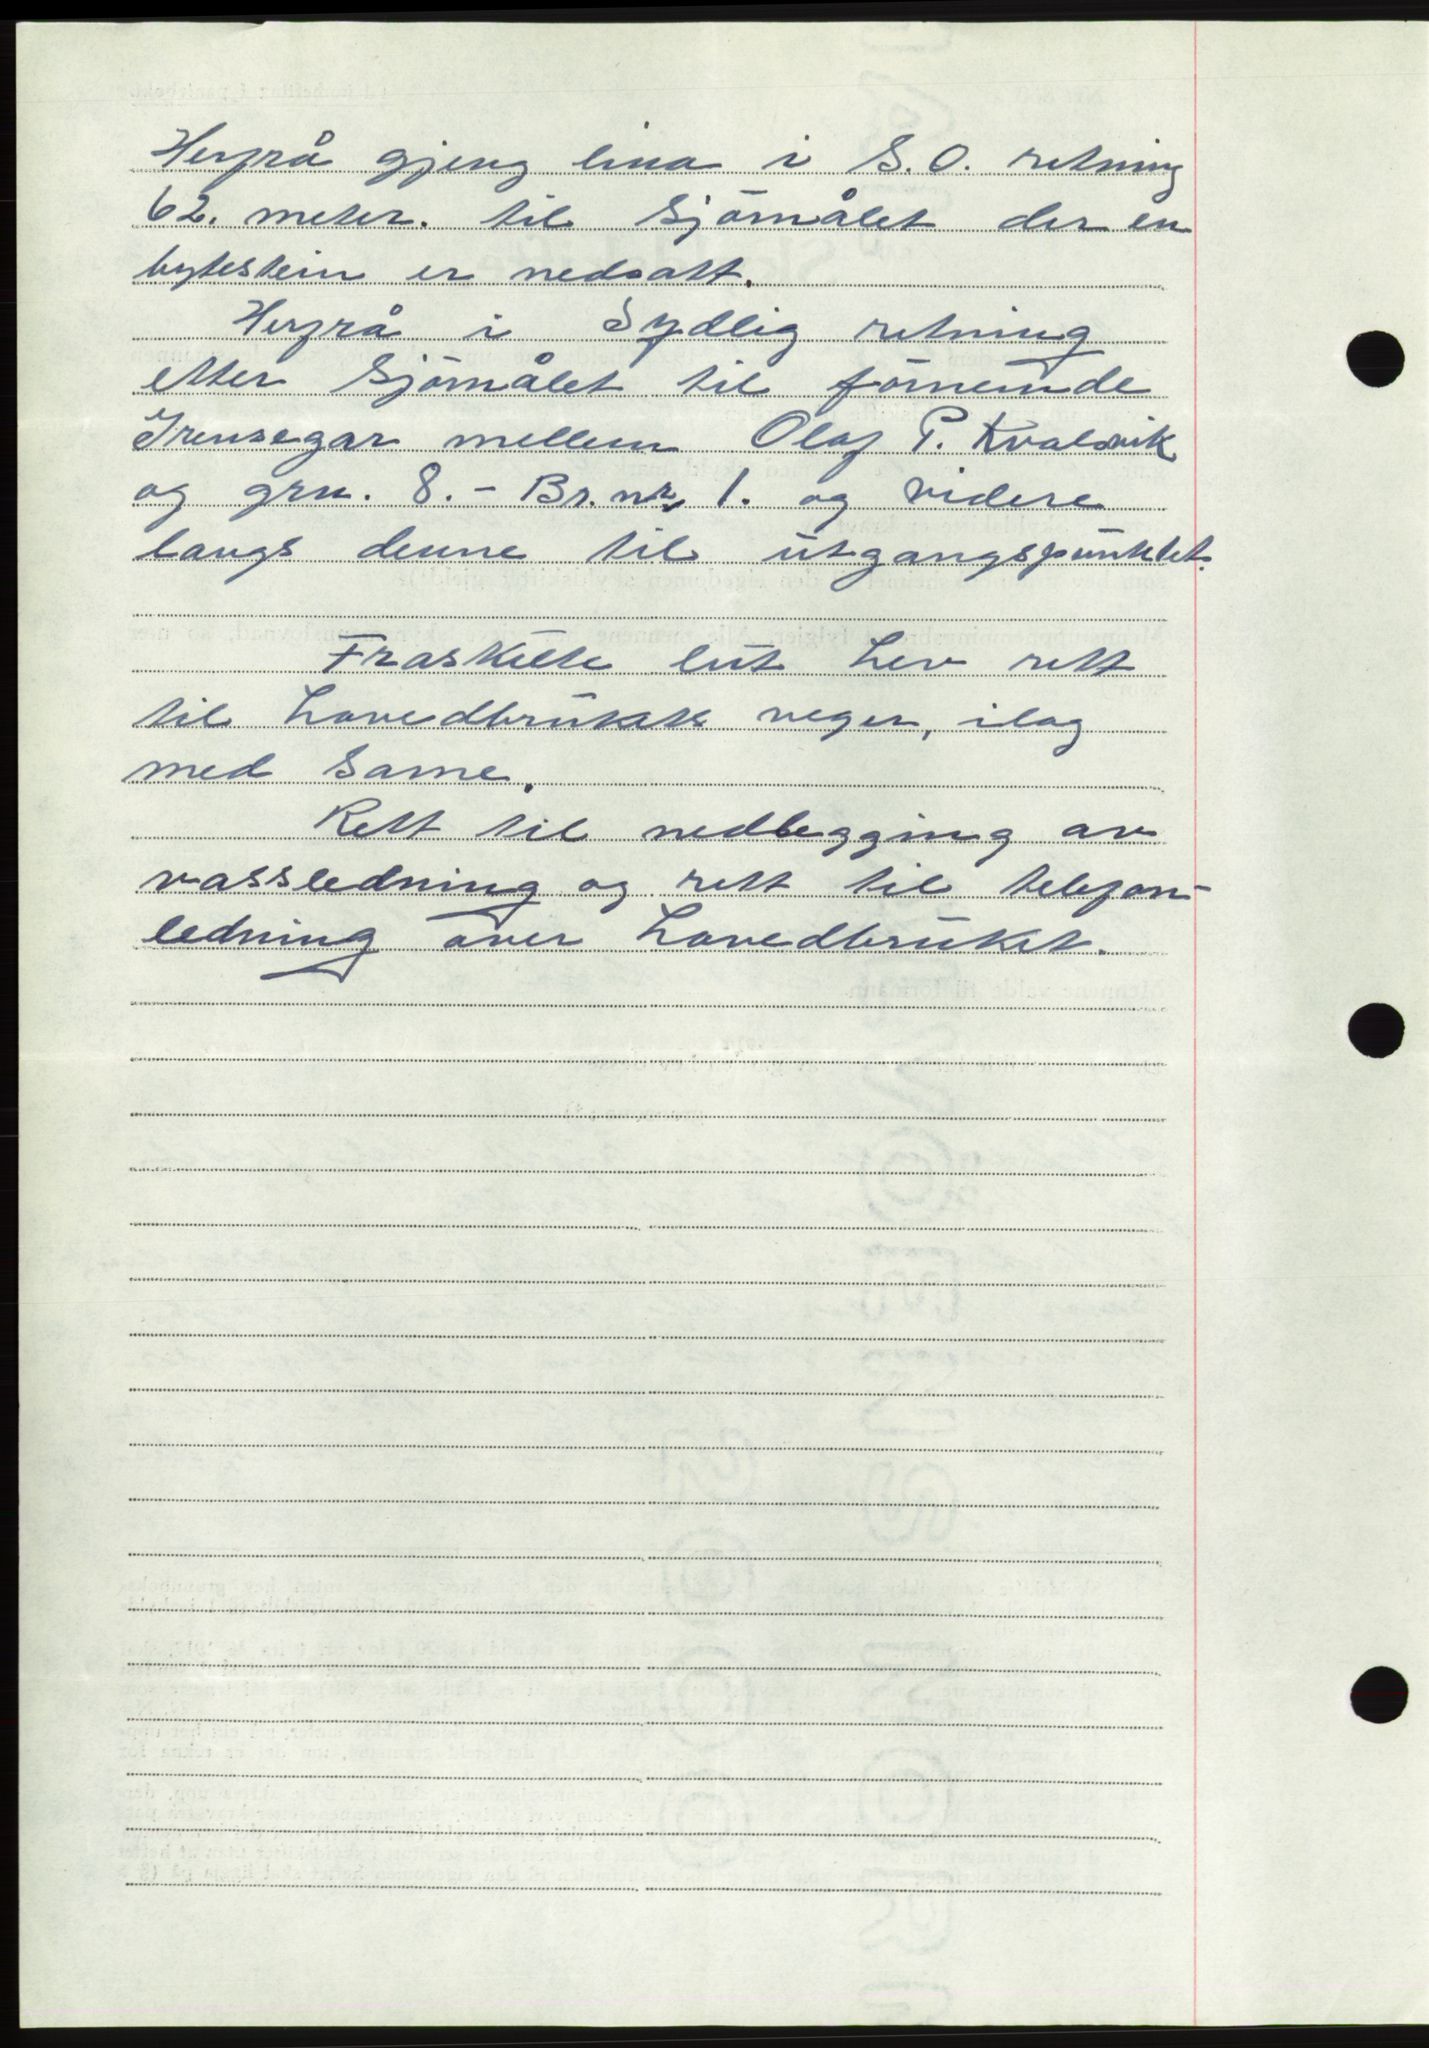 Herfrå gjeng lina i S.O. retning
62. meter. til Sjömålet der en
bytestein er nedsatt.
Herfrå i Sydlig retning
etter Sjömålet til förnemde
Grensegar mellem Olaf P. Kvalsvik
og grn. 8. - Br. nr. 1. og videre
langs denne til ütgangspünktet.
Fraskilte lüt hev rett
til Hovedbrükets veger, ilag
med same.
Rett til nedlegging av
vassledning og rett til telefon-
ledning over Hovedbrüket.